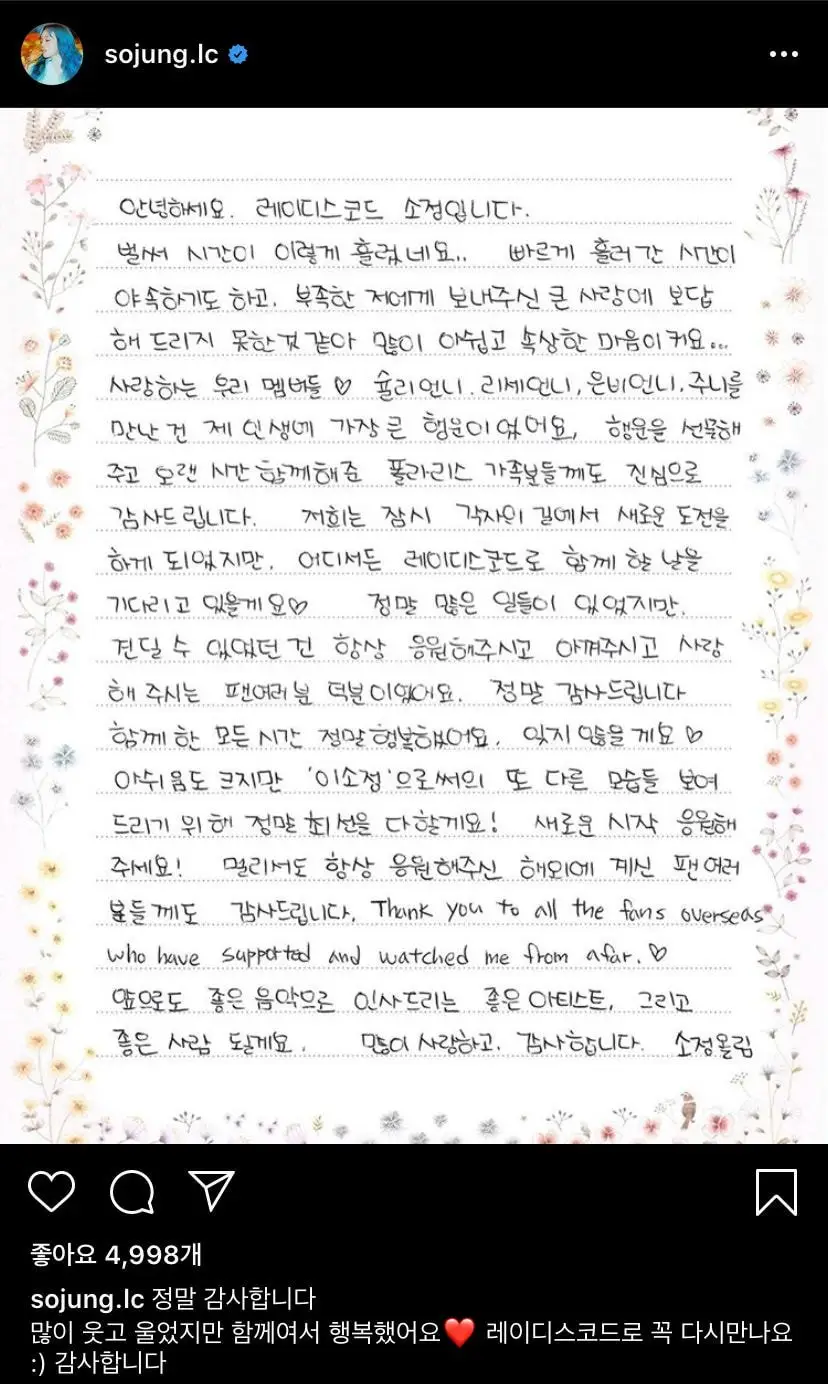 sojung.lc
안녕하세요. 레이디스코드 소정입니다.
벌써 시간이 이렇게 흘렀네요.. 빠르게 흘러간 시간이
야속하기도 하고. 부족한 저에게 보내주신 큰 사랑에 보답
해 드리지 못한것 같아 많이 아쉽고 속상한 마음이 커요...
사랑하는 우리 멤버들♡ 슐리언니. 리세언니, 은비언니. 주니를
만난 건 제 인생에 가장 큰 행운이었어요, 행운을 선물해
주고 오랜 시간 함께해준 폴라리스 가족분들께도 진심으로
감사드립니다. 저희는 잠시 각자의 길에서 새로운 도전을
하게 되었지만, 어디서든 레이디스코드로 함께 할 날을
기다리고 있을게요♡ 정말 많은 일들이 있었지만,
견딜 수 있었던 건 항상 응원해주시고 아껴주시고 사랑
해 주시는 팬여러분 덕분이었어요. 정말 감사드립니다
함께 한 모든 시간 정말행복했어요. 잊지 않을게요♡
아쉬움도 크지만 '이소정'으로써의 또 다른 모습들 보여
드리기 위해 정말 최선을 다할게요! 새로운 시작 응원해
주세요! 멀리서도 항상 응원해주신 해외에 계신 팬 여러
분들께도 감사드립니다. Thank you to all the fans overseas
who have supported and watched me from afar.♡
앞으로도 좋은 음악으로 인사드리는 좋은 아티스트, 그리고
좋은 사람 될게요. 많이 사랑하고. 감사합니다. 소정올림
좋아요 4,998개
sojung.lc 정말 감사합니다
많이 웃고 울었지만 함께여서 행복했어요❤️ 레이디스코드로 꼭 다시만나요
:) 감사합니다